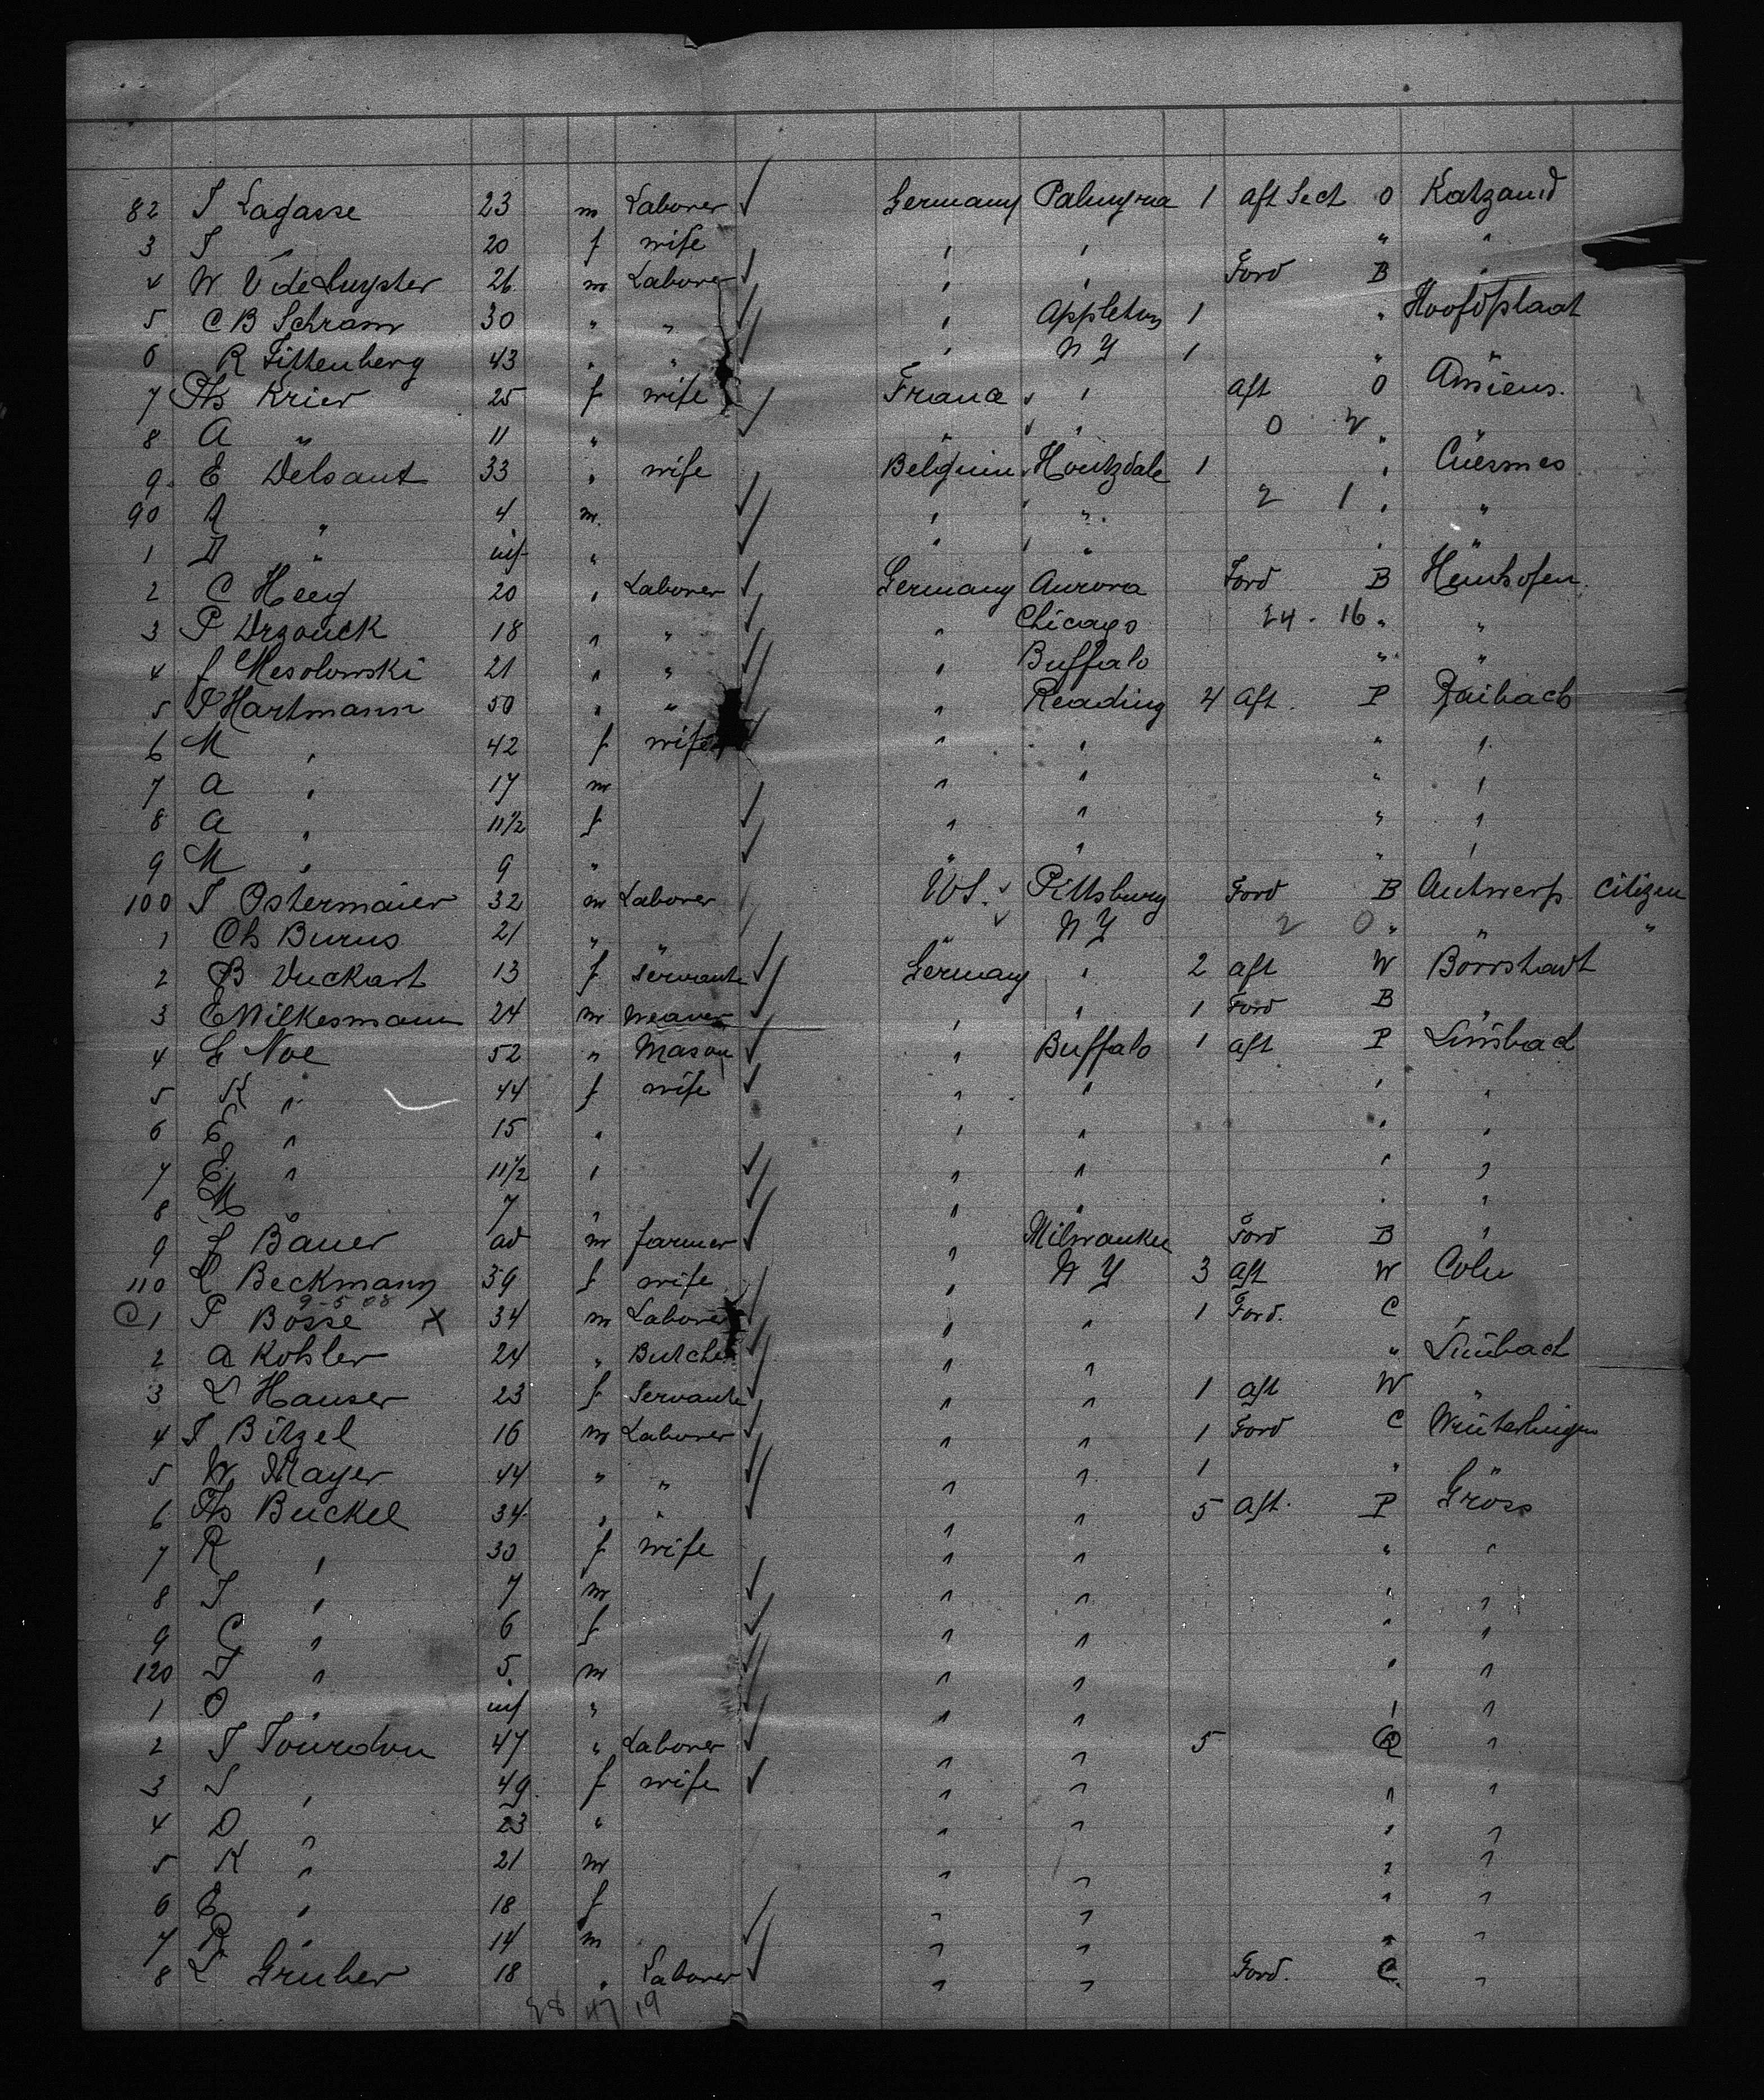 82 J Lagasse 23 m Laborer Germany Palmyra 1 aft Sect O Katzand
3 J " 20 f wife " " " "
4 W V de Luyster 26 m Laborer " " Ford B "
5 C B Schram 30 " " " Appleton 1 " Hoofdplaat
6 R Tittenberg 43 " " " N Y 1 " "
7 Ths Krier 25 f wife France " aft O Amiens.
8 A " 11 " " " O 2 " "
9 E Delsaut 33 " wife Belgium Houtzdale 1 " Cuesmes
90 A " 4 m. " " 2 1 " "
1 D " inf " " " " "
2 C Heeg 20 " Laborer Germany Aurora Ford B Hemhofen
3 P Drzouck 18 " " " Chicago 24 - 16 " "
4 f Mesolowski 21 " " " Buffalo " "
5 P Hartmann 50 " " " Reading 4 aft. P Raibach
6 M " 42 f wife " " " "
7 A " 17 m " " " "
8 A " 11 1/2 f " " " "
9 M " 9 " " " " "
100 J Ostermaier 32 m Laborer US. Pittsburg Ford B Antwerp Citizen
1 Ch Burus 21 " " " N Y 2 O " " "
2 B Duckart 13 f Servante Germany " 2 aft W Borrstadt
3 E Wilkesmann 24 m Weaver " " 1 Ford B "
4 G Noe 52 " Mason " Buffalo 1 aft P Limbach
5 K " 44 f wife " " " "
6 E " 15 " " " " "
7 E " 11 1/2 " " " " "
8 M " 7 " " " " "
9 J Bauer ad m farmer " Milwaukee Ford B "
110 L Beckmann 39 f wife " N Y 3 aft W Coln
9-5 08
C 1 P Bosse X 34 m Laborer " " 1 Ford. C "
2 A Kohler 24 " Butcher " " " Limbach
3 L Hauser 23 f Servante " " 1 aft W "
4 J Bitzel 16 m Laborer " " 1 Ford C Winterlingen
5 W Mayer 44 " " " " 1 " "
6 Ths Buckel 34 " " " " 5 aft. P Gröss
7 R " 30 f wife " " " "
8 J " 7 m " " " "
9 C " 6 f " " " "
120 J " 5. m " " " "
1 O " inf " " " " "
2 J Jourdon 47 " Laborer " " 5 R "
3 S " 49 f wife " " " "
4 D " 23 " " " " "
5 K " 21 m " " " "
6 E " 18 f " " " "
7 R " 14 m " " " "
8 L Gruber 18 " Laborer " " Ford. C. "
28 47 19